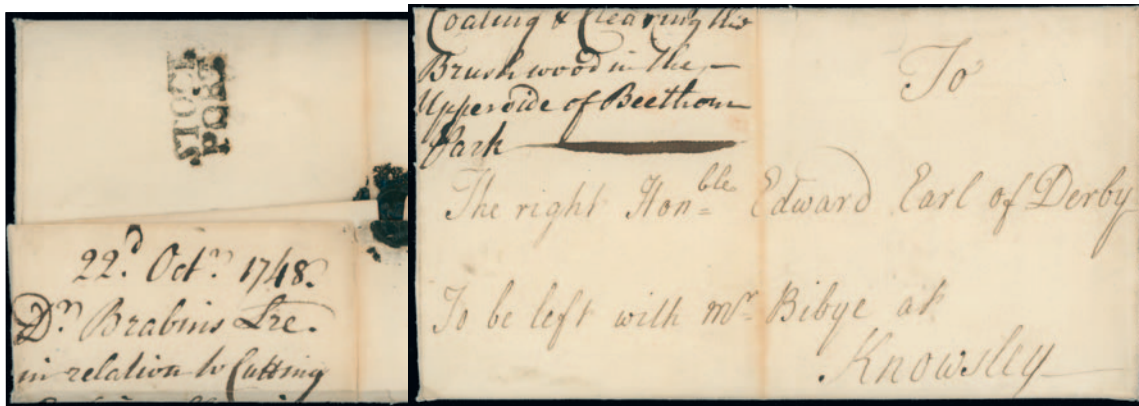 STOCK
PORT
22.d Oct.r 1748.
D.r Brabins Lre.
in relation to Cutting
Coaling & Clearing the
Brushwood in the
Upperside of Beethom
Park
To
The right Hon.ble Edward Earl of Derby
To be left with mr. Bibye at
Knowsley